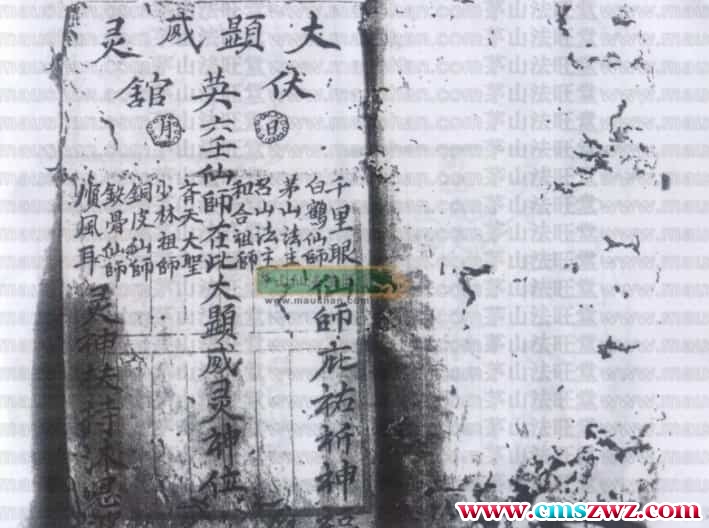 大顯威灵
伏英館
日
月
千里眼
白鶴仙師
茅山法主
山法主
和合祖師
仙師庇祐祈神
六壬仙師在此大顯威灵神位
斉天大聖
少林祖師
銅皮仙師
鉄骨仙師
順風耳
灵神扶持沐恩
www.maushan.com
茅山法旺堂
www.cmszwz.com